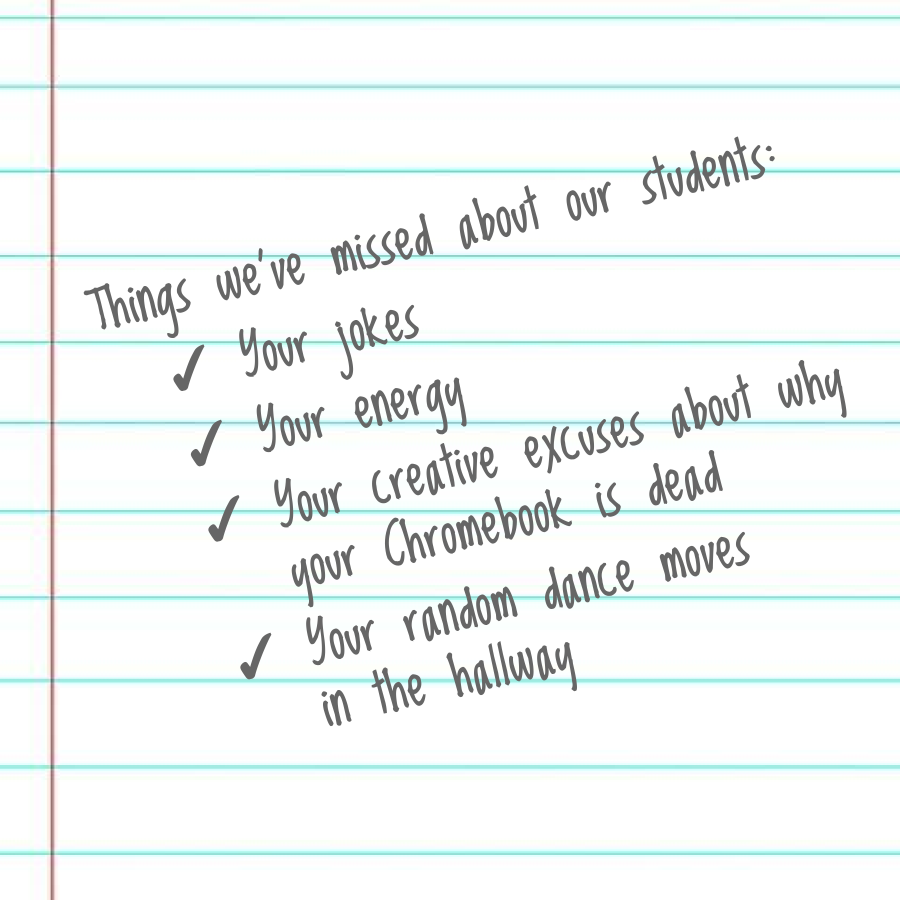 Things we've missed about our students:
✓ Your jokes
✓ Your energy
✓ Your creative excuses about why
your Chromebook is dead
✓ Your random dance moves
in the hallway